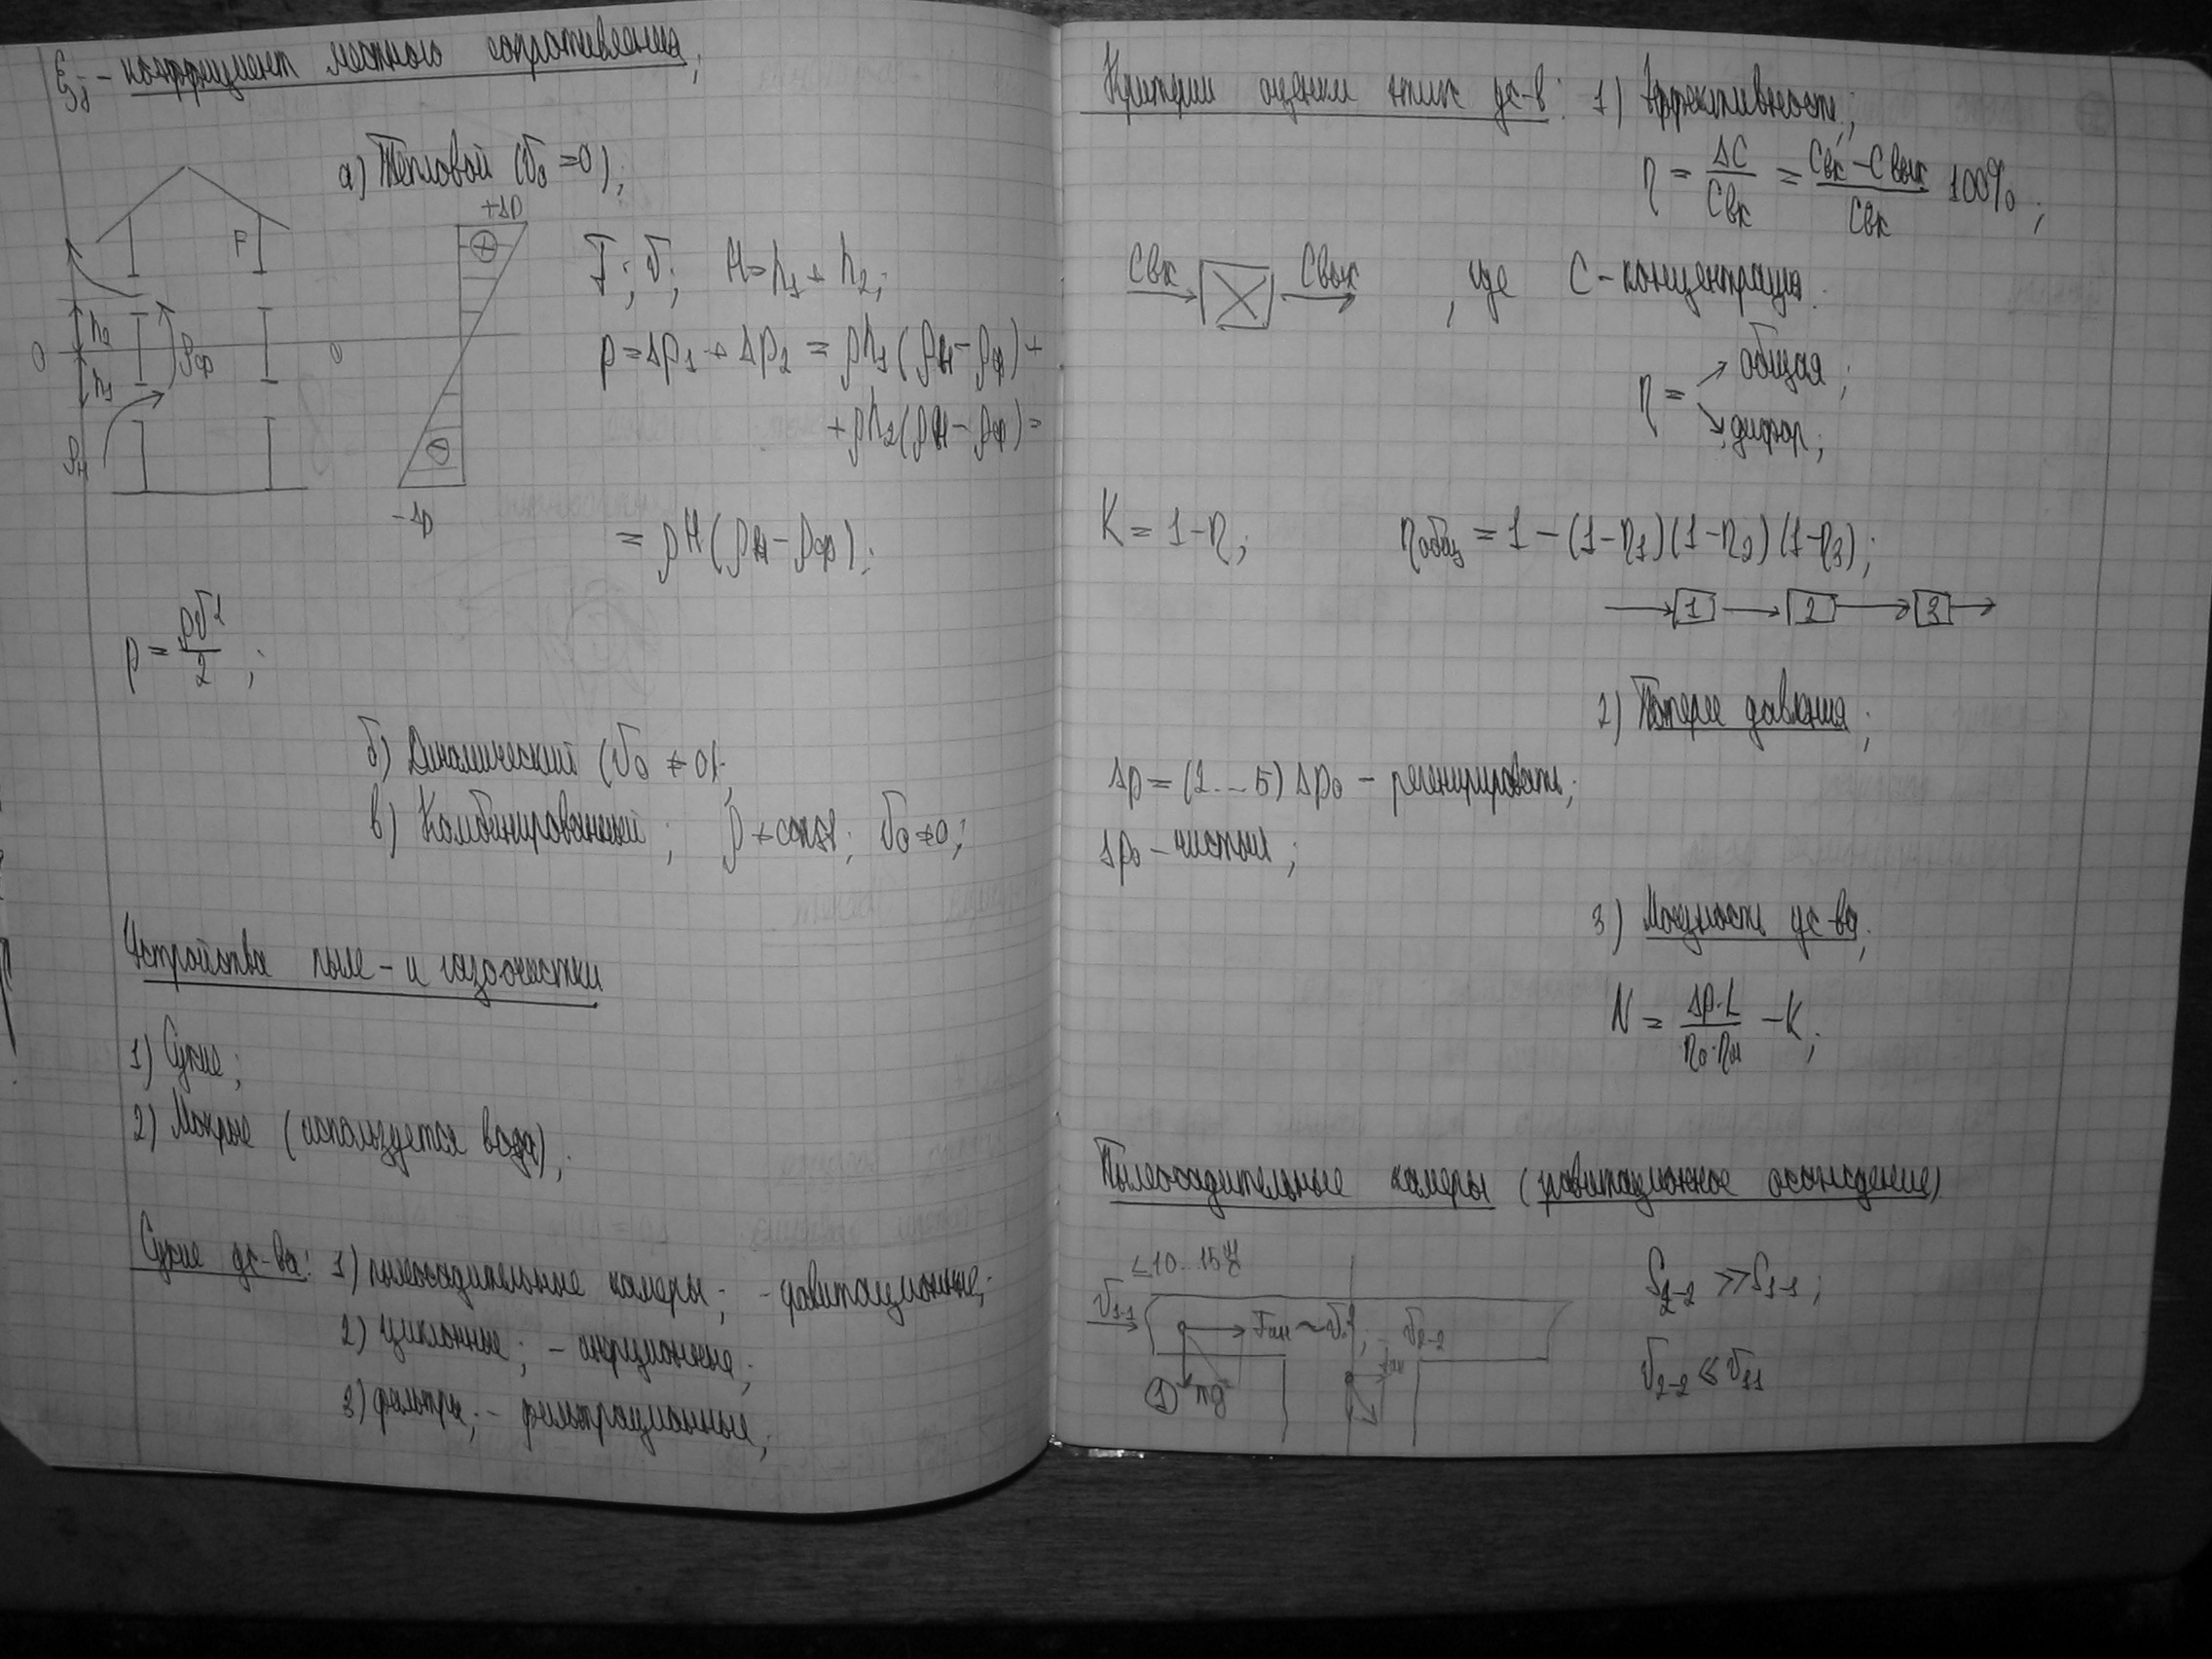 ξj – коэффициент местного сопротивления;
а) Тепловой (v₀ = 0);
+Δp
F
h₂
0
0
h₁
ρср
ρн
-Δp
F; v; H = h₁ + h₂;
p = Δp₁ + Δp₂ = ρh₁(ρн – ρср) +
+ ρh₂(ρн – ρср) =
= ρH(ρн – ρср);
p = ρv²/2;
б) Динамический (v₀ ≠ 0);
в) Комбинированный; ρ ≠ const; v₀ ≠ 0;
Устройства пыле- и газоочистки
1) Сухие;
2) Мокрые (используется вода);
Сухие ус-ва: 1) пылеосадительные камеры; – гравитационные;
2) циклонные; – инерционные;
3) фильтры; – фильтрационные;
Критерии оценки этих ус-в: 1) Эффективность;
η = ΔC/Cвх = (Cвх – Cвых)/Cвх 100%;
Cвх Cвых , где C – концентрация.
η = общая;
K = 1 – η; ηобщ = 1 – (1-η₁)(1-η₂)(1-η₃);
1 2 3
2) Потери давления;
Δp = (2...5) Δp₀ – регенерировать;
Δp₀ – чистый;
3) Мощность ус-ва;
N = Δp·L – K;
Пылеосадительные камеры (гравитационное осаждение)
≤10..15
v₁₋₁
v₂₋₂
mg
S₂₋₂ ≫ S₁₋₁;
v₂₋₂ ≪ v₁₁